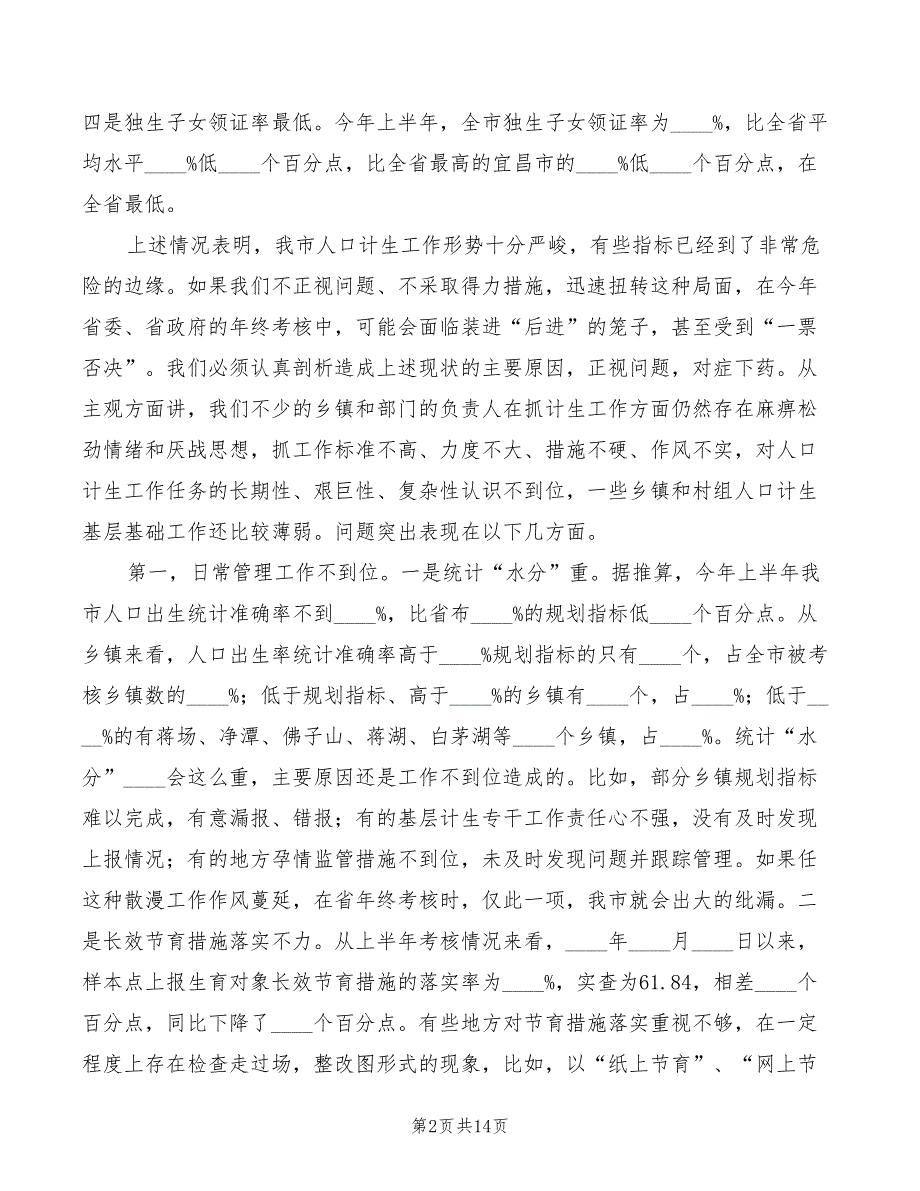 四是独生子女领证率最低。今年上半年，全市独生子女领证率为____%，比全省平
均水平____%低____个百分点，比全省最高的宜昌市的____%低____个百分点，在
全省最低。
上述情况表明，我市人口计生工作形势十分严峻，有些指标已经到了非常危
险的边缘。如果我们不正视问题、不采取得力措施，迅速扭转这种局面，在今年
省委、省政府的年终考核中，可能会面临装进“后进”的笼子，甚至受到“一票
否决”。我们必须认真剖析造成上述现状的主要原因，正视问题，对症下药。从
主观方面讲，我们不少的乡镇和部门的负责人在抓计生工作方面仍然存在麻痹松
劲情绪和厌战思想，抓工作标准不高、力度不大、措施不硬、作风不实，对人口
计生工作任务的长期性、艰巨性、复杂性认识不到位，一些乡镇和村组人口计生
基层基础工作还比较薄弱。问题突出表现在以下几方面。
第一，日常管理工作不到位。一是统计“水分”重。据推算，今年上半年我
市人口出生统计准确率不到____%，比省布____%的规划指标低____个百分点。从
乡镇来看，人口出生率统计准确率高于____%规划指标的只有____个，占全市被考
核乡镇数的____%；低于规划指标、高于____%的乡镇有____个，占____%；低于__
__%的有蒋场、净潭、佛子山、蒋湖、白茅湖等____个乡镇，占____%。统计“水
分”____会这么重，主要原因还是工作不到位造成的。比如，部分乡镇规划指标
难以完成，有意漏报、错报；有的基层计生专干工作责任心不强，没有及时发现
上报情况；有的地方孕情监管措施不到位，未及时发现问题并跟踪管理。如果任
这种散漫工作作风蔓延，在省年终考核时，仅此一项，我市就会出大的纰漏。二
是长效节育措施落实不力。从上半年考核情况来看，____年____月____日以来，
样本点上报生育对象长效节育措施的落实率为____%，实查为61.84，相差____个
百分点，同比下降了____个百分点。有些地方对节育措施落实重视不够，在一定
程度上存在检查走过场，整改图形式的现象，比如，以“纸上节育”、“网上节
第2页共14页